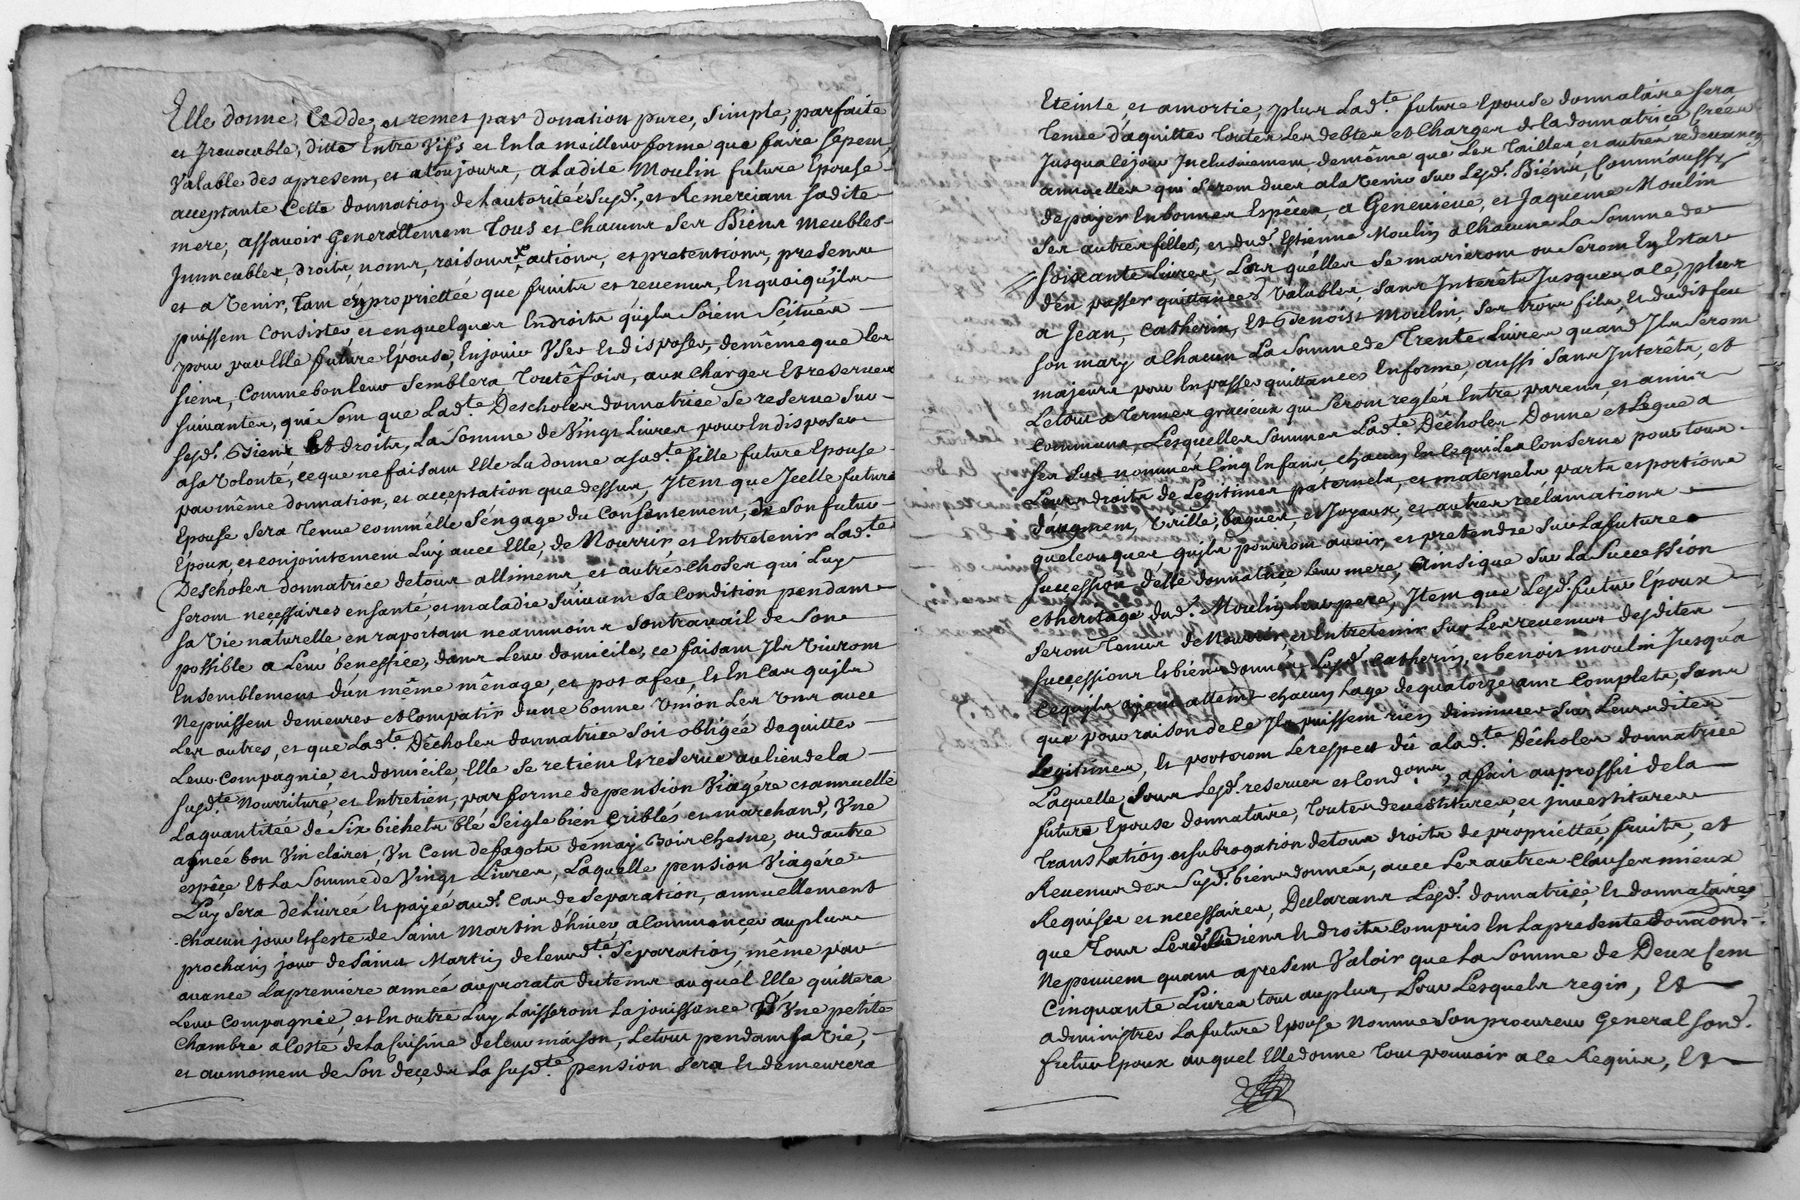 Elle donne, Cedde, et remet par donation pure, simple, parfaite
et Irrevocable, ditte Entre Vifs et En la meilleur forme que faire se peut,
Valable des apresent, et a toujours, a Ladite Moulin future Epouse
acceptante Cette donnation de L'autoritée susd.t, et Remerciant sadite
mere, assavoir Generallement Tous et Chacuns ses Biens meubles
Immeubles, droits, noms, raisons, actions, et pretentions, presens
et a Venir, tant en propriettée que fruits et revenus, En quoi qu'ils
puissent Consister, et en quelques Endroits qu'ils soient scitués
pour par Elle future Epouse, En jouir User Et disposer, de même que les
siens, Comme bon leur semblera, Toutêfois, aux charges Et reserves
suivantes, qui sont que Lad.te Descholes donnatrice se reserve sur
sesd. Biens Et droits, La somme de Vingt Livres pour En disposer
a sa Volonté, ce que ne faisant Elle La donne a sad.te fille future Epouse
par même donnation, et acceptation que dessus, Item que Jcelle future
Epouse sera Tenue comme elle s'engage du Consentement, de son futur
Époux, et conjointement Luy avec Elle, de Nourrir et Entretenir Lad.te
Descholes donnatrice de tous alliments et autres choses qui Luy
seront necessaires en santé, et maladie suivant sa Condition pendant
sa Vie naturelle en raportant neanmoins son travail de son
possible a Leur beneffice, dans Leur domicile, ce faisant Ils Vivront
Ensemblement d'un même mênage, et pot a feu, Et En Cas qu'ils
Ne puissent demeurer et Compatir d'une bonne Union Les Uns avec
Les autres, et que Lad.te Dêcholes donnatrice soit obligée de quitter
Leur Compagnie, et domicile, Elle se retient Et reserve au lieu de la
susd.te Nourriture, et Entretien, par forme de pension Viagére et annuelle
La quantitée de Six bichets blé seigle bien criblés et marchand, Vne
asnée bon Vin clairet, Vn Cent de fagots de may Bois Chesne, ou d'autre
espêce Et La somme de Vingt Livres, Laquelle pension Viagére
Luy sera delivrée Et payée aud. Cas de separation, annuellement
chacun jour Et feste de Saint Martin d'hiver a Commencer au plus
prochain jour de Saint Martin de leurd.te separation, même par
avance La premiere année au prorata du tems auquel Elle quittera
Leur Compagnie, et En outre Luy Laisseront La jouissance D'Vne petite
Chambre a Costé de La Cuisine de leur maison, Le tout pendant sa Vie,
et au moment de son deçeds La susd.te pension sera Et demeurera
Eteinte et amortie, plus Lad.te future Epouse donnataire sera
Tenue d'aquitter Toutes Les debtes et Charges de la donnatrice Créés
Jusqua ce jour Inclusivement, de même que Les Tailles et autres redevances
annuelles qui seront dues a la Venir sur Lesd. Biens, Comm'aussy
de payer En bonnes Espêces, a Genevieve, et Jaquême Moulin
ses autres filles, et dud. Estienne Moulin a Chacune La Somme de
soixante Livres, Lors qu'elles se marieront ou seront En Estat
d'en passer quittances, Valables, sans Interêts Jusques a ce, plus
a Jean, Catherin, Et Benoist Moulin, ses trois fils, Et dudit feu
son mary a Chacun La Somme de Trente Livres quand Ils seront
majeurs pour En passer quittances En forme aussi sans Interêts, et
Le tout a Termes gracieux qui seront reglés Entre parens, et amis
Communs, Lesquelles sommes Lad.te Dêcholes Donne et Legue a
ses sus nommés Cinq Enfans, chacun En ce qui Les Conserne pour tous
Leurs droits de Legitimes paternels, et maternels parts et portions
d'augment, Trille, bagues, et Joyaux, et autres réclamations
quelconques qu'ils pourront avoir, et pretendre sur La future
succession d'elle donnatrice Leur mere, Ainsi que sur La Succession
et heritage dud. Moulin Leur pere, Item que Lesd. futur Époux
seront Tenus de Nourrir, et Entretenir sur Les revenus desdites
successions Et biens donnés Lesd. Catherin, et benoit moulin Jusqu'a
ce qu'ils ayent atteint chacun L'age de quatorze ans Complets, sans
que pour raison de ce Ils puissent rien diminuer sur Leursdites
Legitimes, Et porteront Le respect dû a lad.te Dêcholes donnatrice
Laquelle sous Lesd. reserves et Cond.ons, a fait au proffit de la
future Epouse donnataire, Toutes devestitures, et investitures
Translation et subrogation de tous droits de propriettée, fruits, et
Revenus des susd. biens donnés, avec Les autres Clauses mieux
Requises et necessaires, Declarans Lesd. donnatrice, Et donnataire
que Tous Lesd. Biens Et droits Compris En La presente donnaon.
Ne peuvent quant apresent Valoir que La Somme de Deux Cent
Cinquante Livres tout au plus, Pour Lesquels regir, Et
administrer La future Epouse Nomme son procureur General sond.
futur Epoux auquel Elle donne Tout pouvoir a ce Requis, Et